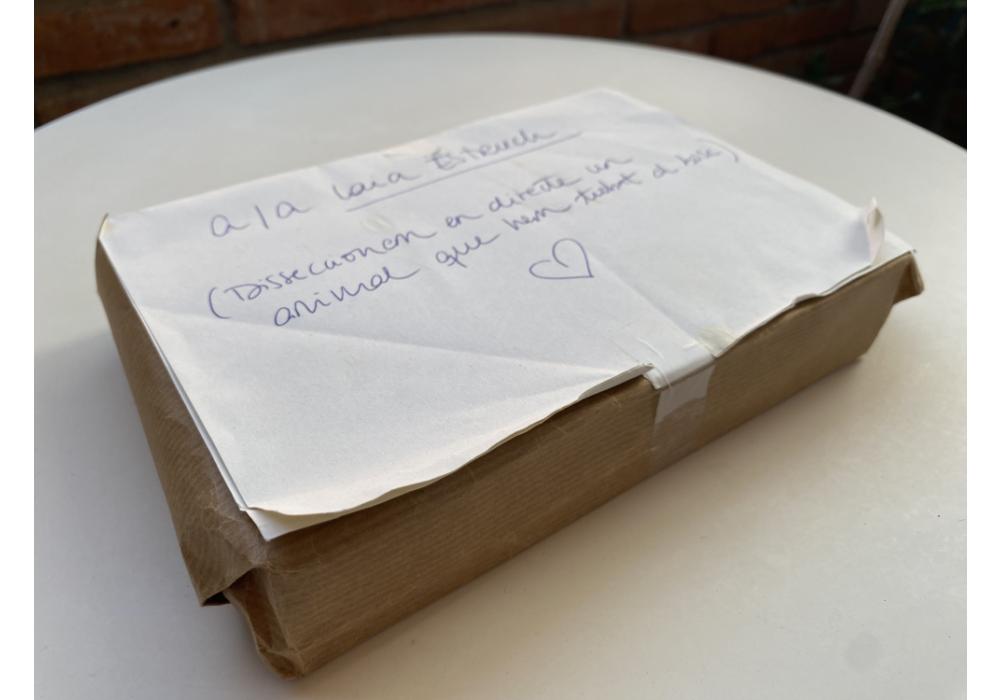 a la Laia Estruch
(Disseccionem en directe un
animal que hem trobat al bosc)